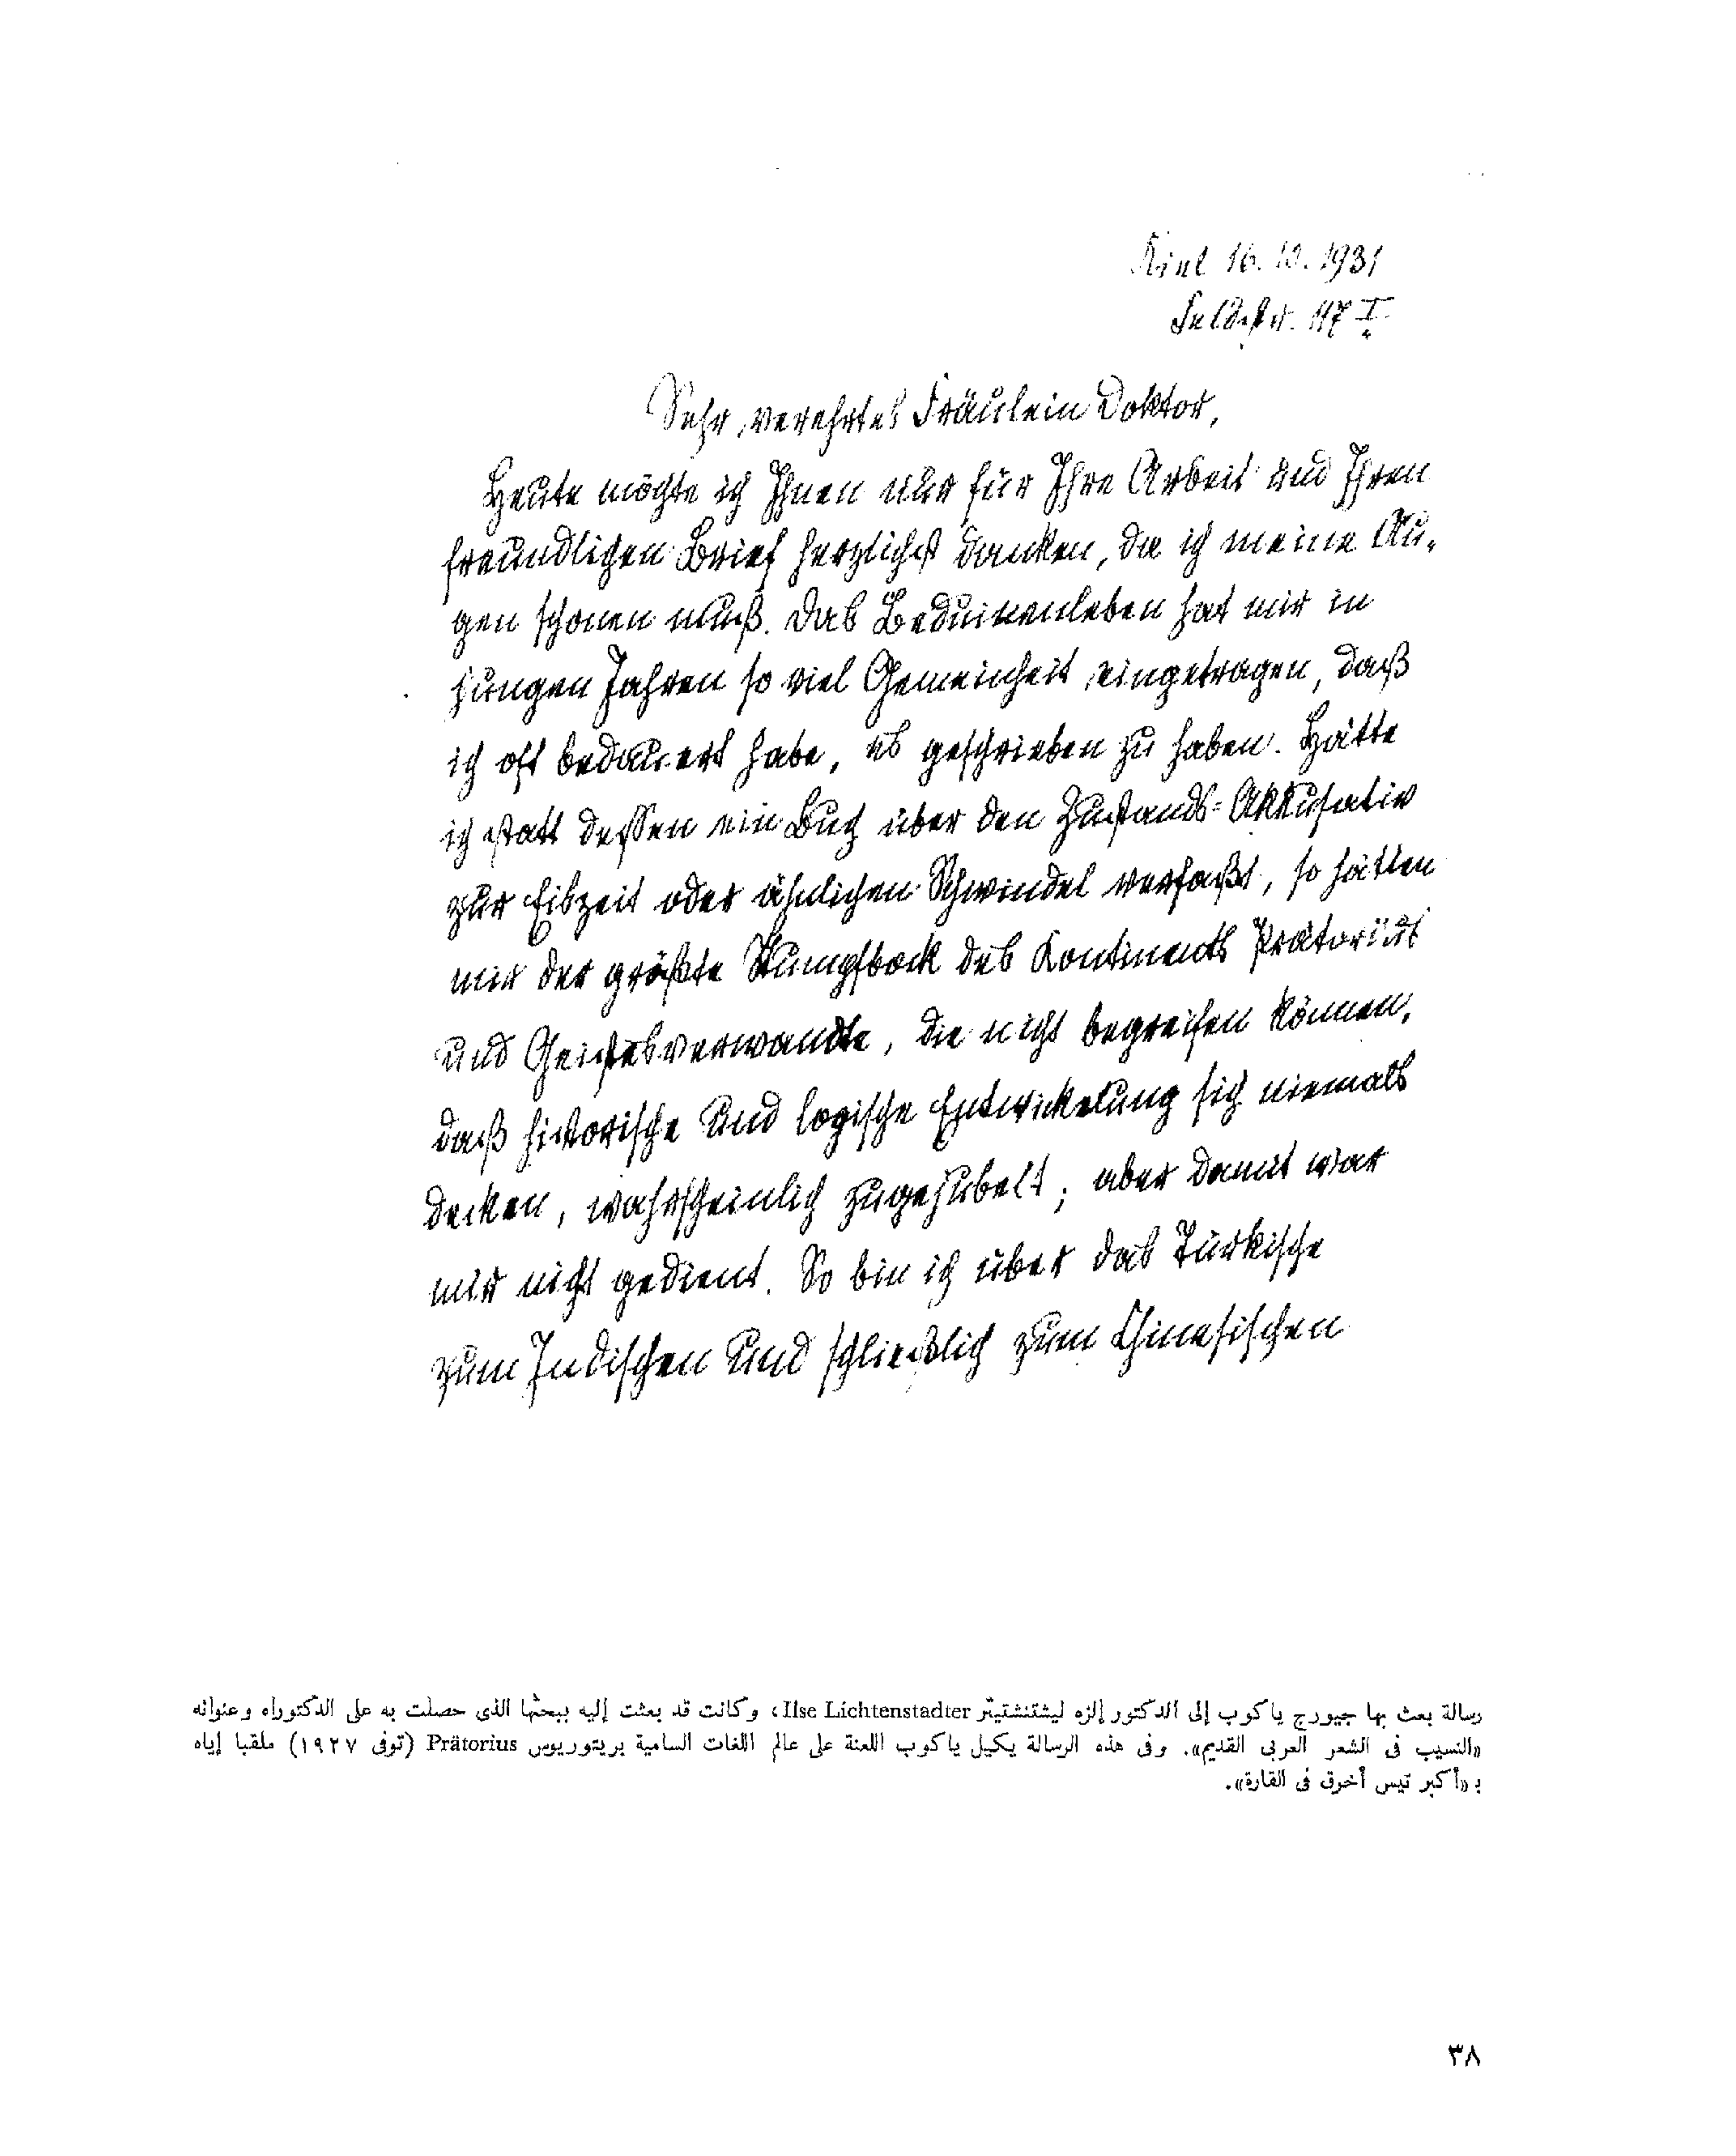 Kiel 16. 10. 1931
Feldstr. 117 I.
Sehr verehrtes Fräulein Doktor,
Heute möchte ich Ihnen nur für Ihre Arbeit und Ihren
freundlichen Brief herzlichst danken, da ich meine Au-
gen schonen muß. Das Beduinenleben hat mir in
jungen Jahren so viel Gemeinheit eingetragen, daß
ich oft bedauert habe, es geschrieben zu haben. Hätte
ich statt dessen ein Buch über den Zustands-Akkusativ
zur Eiszeit oder ähnlichen Schwindel verfaßt, so hätten
mir der größte Stumpfbock des Kontinents Prätorius
und Geistesverwandte, die nicht begreifen können,
daß historische und logische Entwickelung sich niemals
decken, wahrscheinlich zugejubelt; aber damit war
mir nicht gedient. So bin ich über das Türkische
zum Indischen und schließlich zum Chinesischen
رسالة بعث بها جيورج ياكوب إلى الدكتور إلزه ليشتنشتيتر Ilse Lichtenstadter، وكانت قد بعثت إليه ببحثها الذى حصلت به على الدكتوراه وعنوانه
«النسيب فى الشعر العربى القديم». وفى هذه الرسالة يكيل ياكوب اللعنة على عالم اللغات السامية بريتوريوس Prätorius (توفى ١٩٢٧) ملقبا إياه
بـ «أكبر تيس أخرق فى القارة».
٣٨